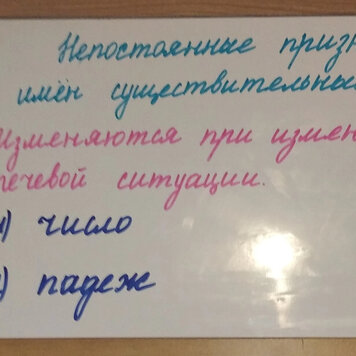 Непостоянные призн
имён существительны
Изменяются при измен
речевой ситуации.
1) число
) падеж